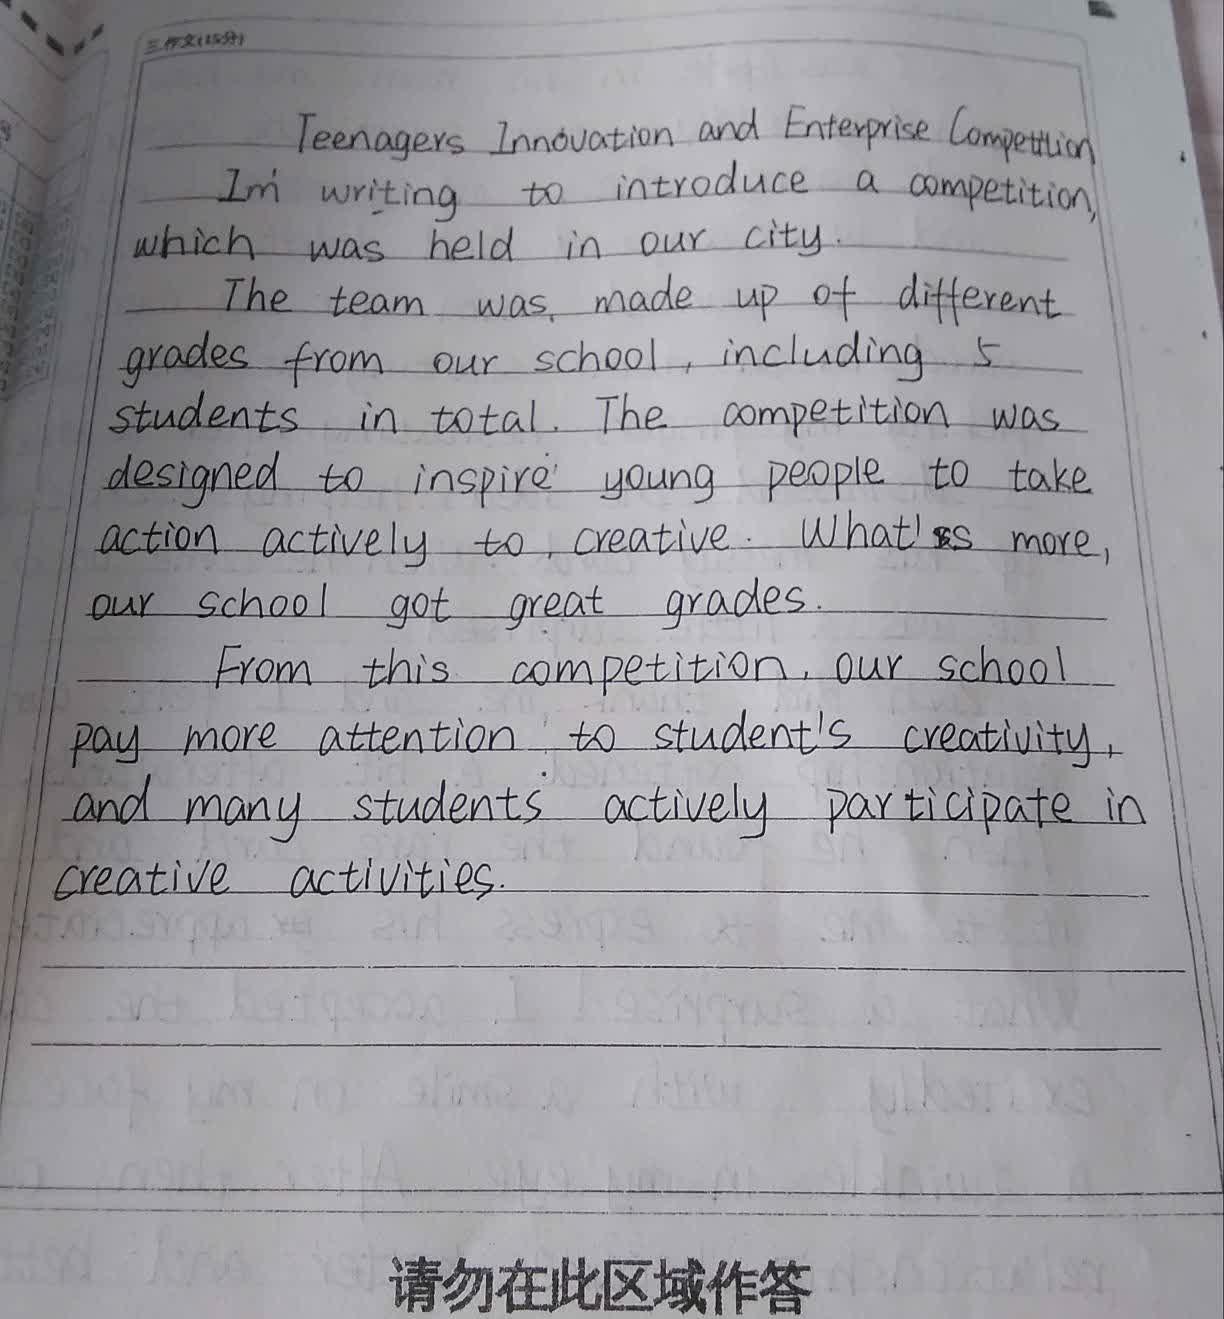 三 作文(15分)
Teenagers Innovation and Enterprise Compettlion
I'm writing to introduce a competition,
which was held in our city.
The team was made up of different
grades from our school, including 5
students in total. The competition was
designed to inspire young people to take
action actively to creative. What's more,
our school got great grades.
From this competition, our school
pay more attention to student's creativity,
and many students actively participate in
creative activities.
请勿在此区域作答